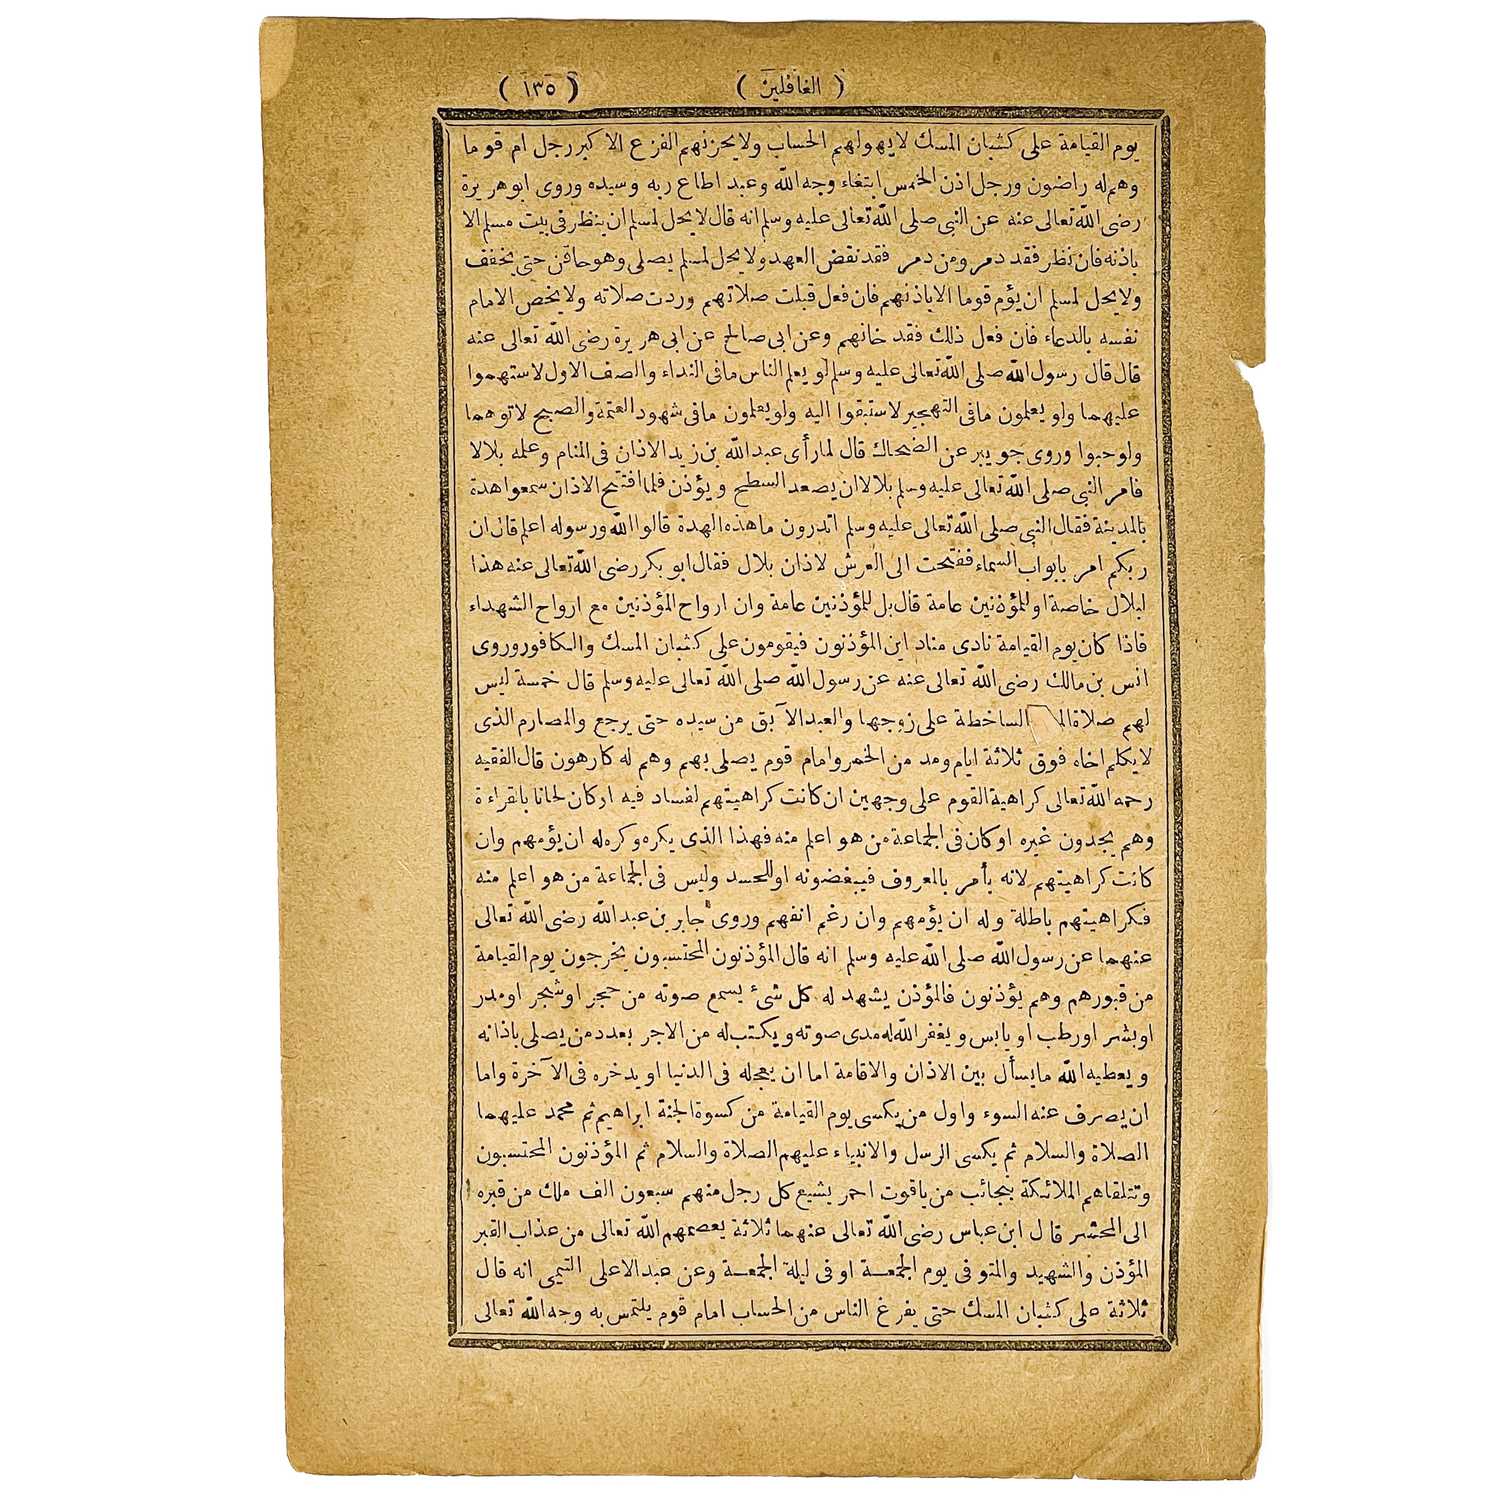 ( الغافلين ) ( ١٣٥ )
يوم القيامة على كشبان المسك لا يهولهم الحساب ولا يحزنهم الفزع الاكبر رجل ام قوما
وهم له راضون ورجل اذن الخمس ابتغاء وجه الله وعبد اطاع ربه وسيده وروى ابو هريرة
رضى الله تعالى عنه عن النبى صلى الله تعالى عليه وسلم انه قال لا يحل لمسلم ان ينظر فى بيت مسلم الا
باذنه فان نظر فقد دمر ومن دمر فقد نقض العهد ولا يحل لمسلم يصلى وهو حاقن حتى يخفف
ولا يحل لمسلم ان يؤم قوما الا باذنهم فان فعل قبلت صلاتهم وردت صلاته ولا يخص الامام
نفسه بالدعاء فان فعل ذلك فقد خانهم وعن ابى صالح عن ابى هريرة رضى الله تعالى عنه
قال قال رسول الله صلى الله تعالى عليه وسلم لو يعلم الناس ما فى النداء والصف الاول لاستهموا
عليهما ولو يعلمون ما فى التهجير لاستبقوا اليه ولو يعلمون ما فى شهود العتمة والصبح لاتوهما
ولو حبوا وروى جويبر عن الضحاك قال لما رأى عبد الله بن زيد الاذان فى المنام وعلمه بلالا
فامر النبى صلى الله تعالى عليه وسلم بلالا ان يصعد السطح ويؤذن فلما افتتح الاذان سمعوا هدة
بالمدينة فقال النبى صلى الله تعالى عليه وسلم اتدرون ما هذه الهدة قالوا الله ورسوله اعلم قال ان
ربكم امر بابواب السماء ففتحت الى العرش لاذان بلال فقال ابو بكر رضى الله تعالى عنه هذا
لبلال خاصة او للمؤذنين عامة قال بل للمؤذنين عامة وان ارواح المؤذنين مع ارواح الشهداء
فاذا كان يوم القيامة نادى مناد اين المؤذنون فيقومون على كثبان المسك والكافور وروى
انس بن مالك رضى الله تعالى عنه عن رسول الله صلى الله تعالى عليه وسلم قال خمسة ليس
لهم صلاة الساخطة على زوجها والعبد الآبق من سيده حتى يرجع والمصارم الذى
لا يكلم اخاه فوق ثلاثة ايام ومد من الخمر وامام قوم يصلى بهم وهم له كارهون قال الفقيه
رحمه الله تعالى كراهية القوم على وجهين ان كانت كراهيتهم لفساد فيه اركان لحانا بالقراءة
وهم يجدون غيره او كان فى الجماعة من هو اعلم منه فهذا الذى يكره وكره له ان يؤمهم وان
كانت كراهيتهم لانه يأمر بالمعروف فيبغضونه او للحسد وليس فى الجماعة من هو اعلم منه
فكراهيتهم باطلة وله ان يؤمهم وان رغم انفهم وروى جابر بن عبد الله رضى الله تعالى
عنهما عن رسول الله صلى الله عليه وسلم انه قال المؤذنون المحتسبون يخرجون يوم القيامة
من قبورهم وهم يؤذنون فالمؤذن يشهد له كل شئ يسمع صوته من حجر او شجر او مدر
او بشر او رطب او يابس ويغفر الله له مدى صوته ويكتب له من الاجر بعدد من يصلى باذانه
ويعطيه الله ما يسأل بين الاذان والاقامة اما ان يعجله فى الدنيا او يدخره فى الآخرة واما
ان يصرف عنه السوء واول من يكسى يوم القيامة من كسوة الجنة ابراهيم ثم محمد عليهما
الصلاة والسلام ثم يكسى الرسل والانبياء عليهم الصلاة والسلام ثم المؤذنون المحتسبون
وتتلقاهم الملائكة بنجائب من ياقوت احمر يشيع كل رجل منهم سبعون الف ملك من قبره
الى المحشر قال ابن عباس رضى الله تعالى عنهما ثلاثة يعصمهم الله تعالى من عذاب القبر
المؤذن والشهيد والمتوفى يوم الجمعة او فى ليلة الجمعة وعن عبد الاعلى التيمى انه قال
ثلاثة على كثبان المسك حتى يفرغ الناس من الحساب امام قوم يلتمس به وجه الله تعالى